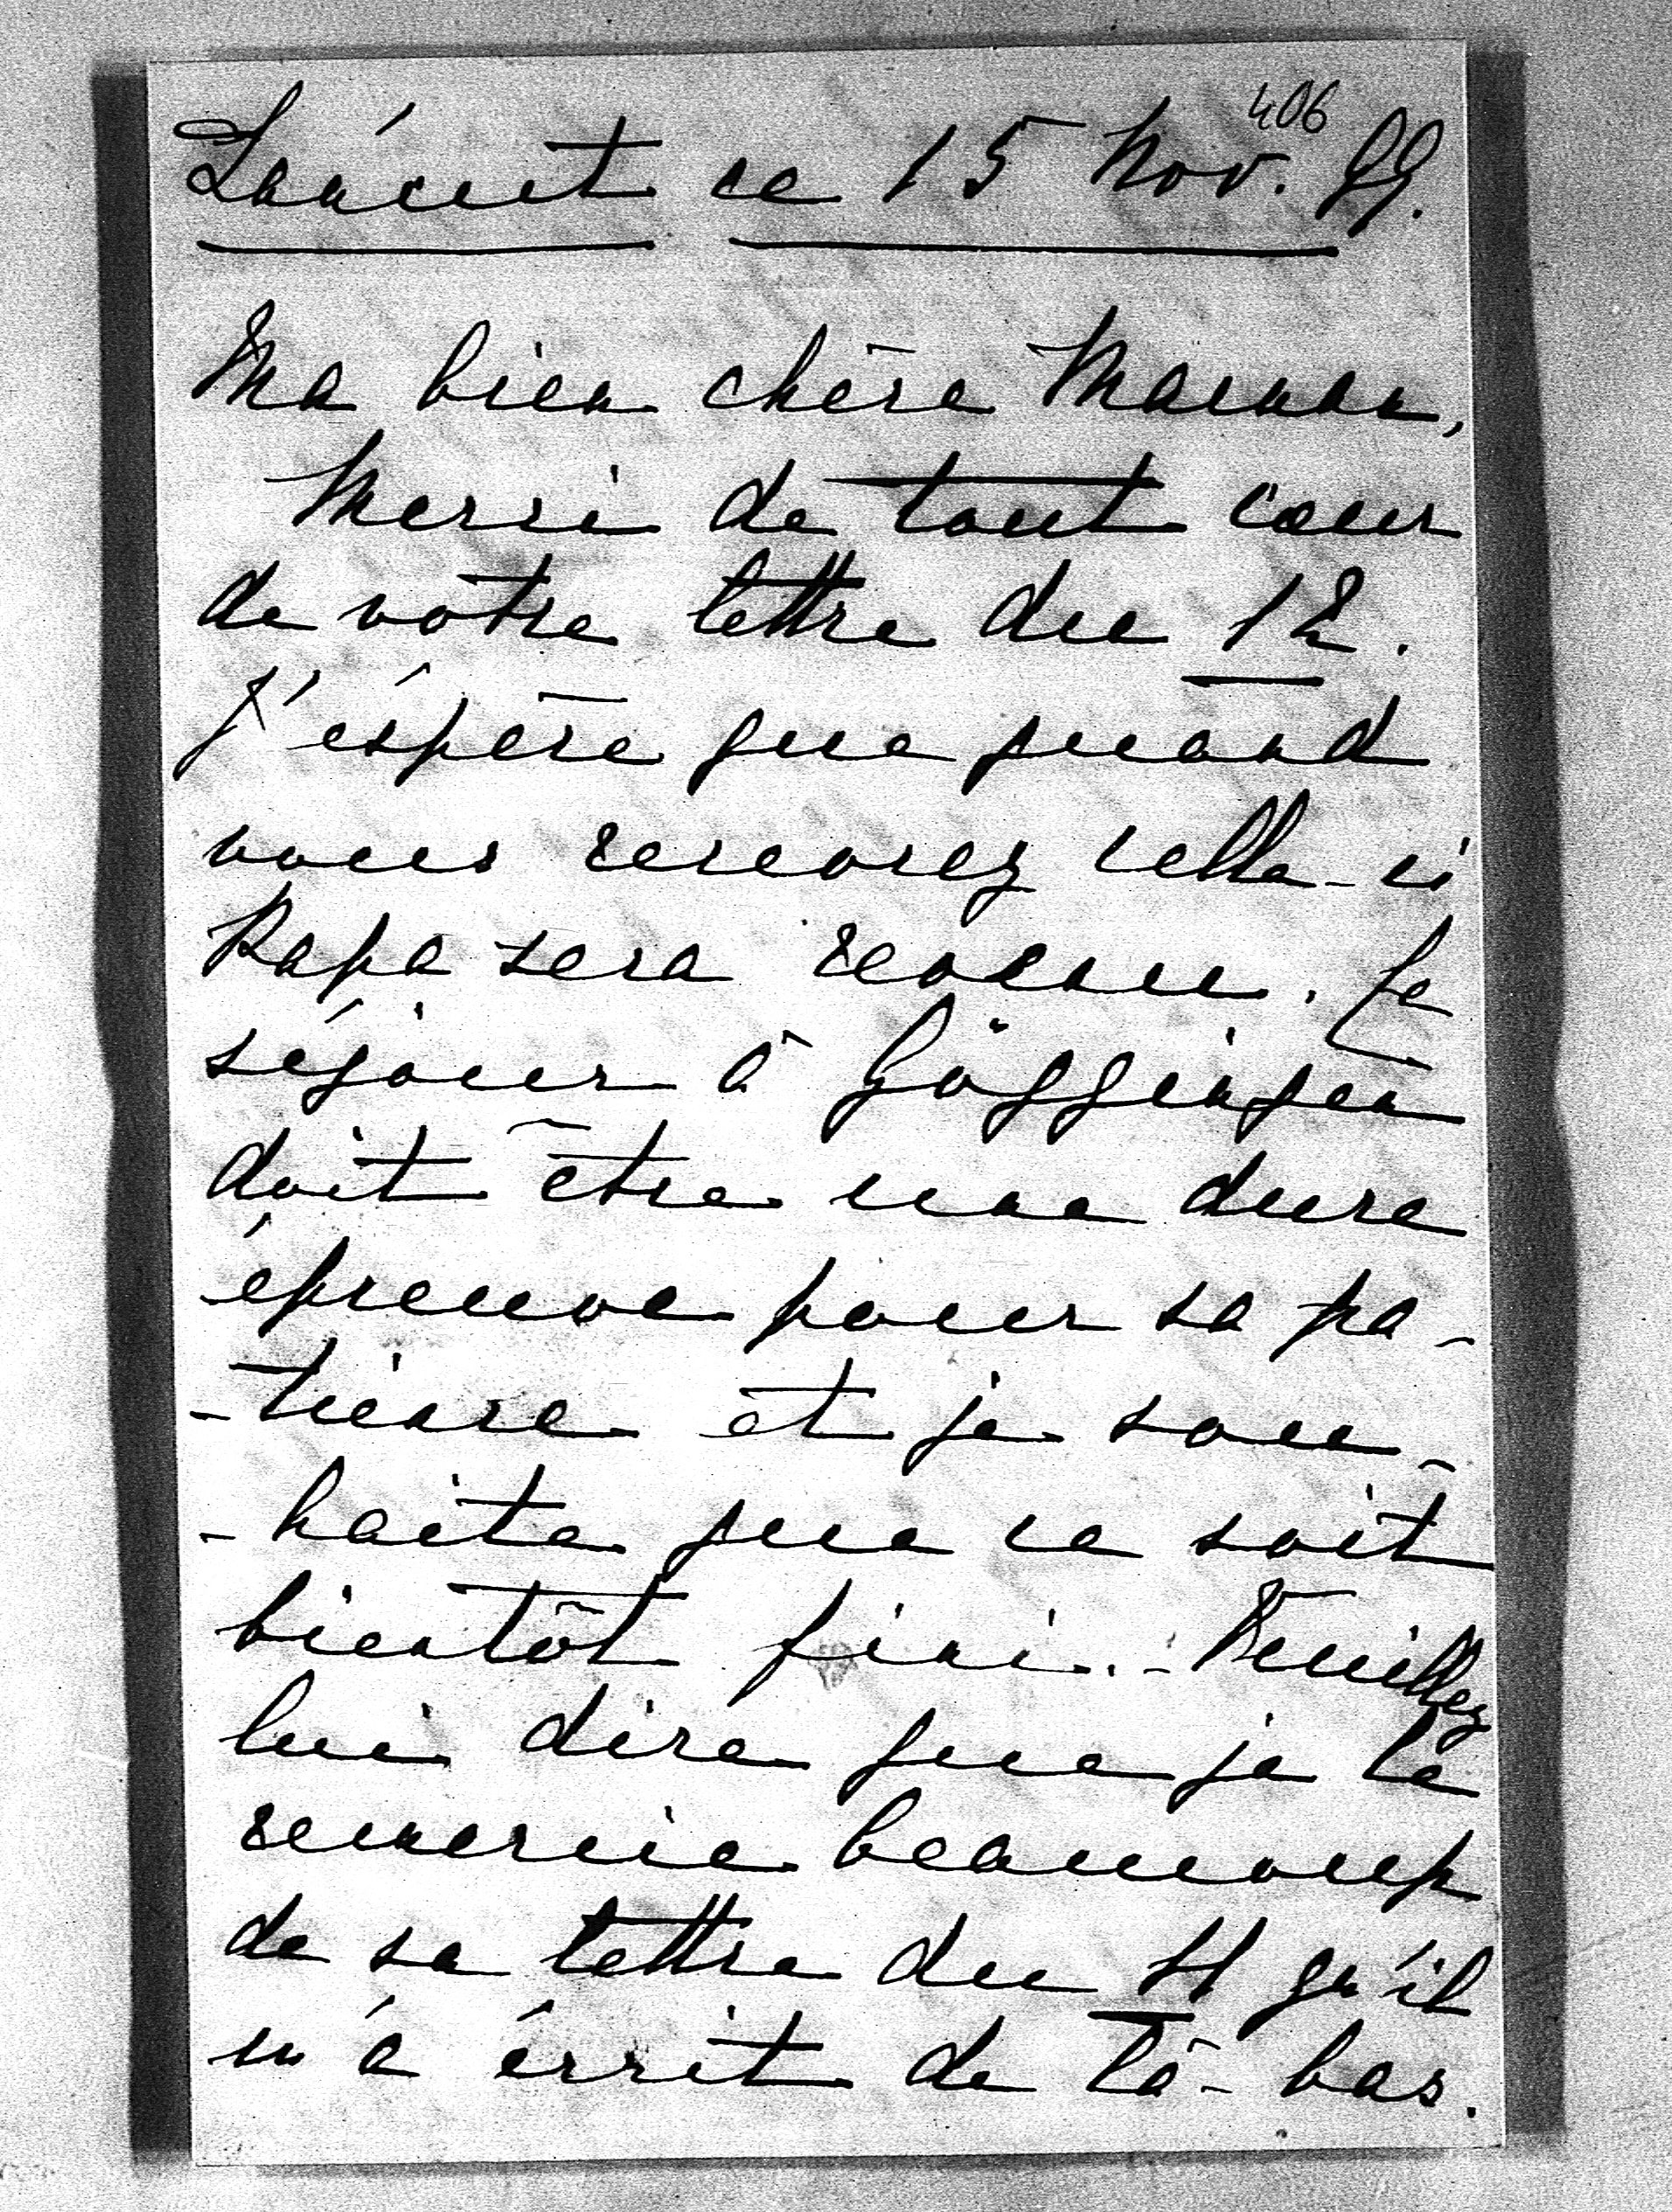 406
Láncut ce 15 Nov. 99.
Ma bien chère Maman,
Merci de tout cœur
de votre lettre du 12.
J'éspère que quand
vous recevrez celle-ci
Papa sera revenu. Le
séjour à Göggingen
doit être une dure
épreuve pour sa pa-
-tience et je sou-
-haite que ce soit
bientôt fini. - Veuillez
lui dire que je le
remercie beaucoup
de sa lettre du 11 qu'il
m'a écrit de là-bas.